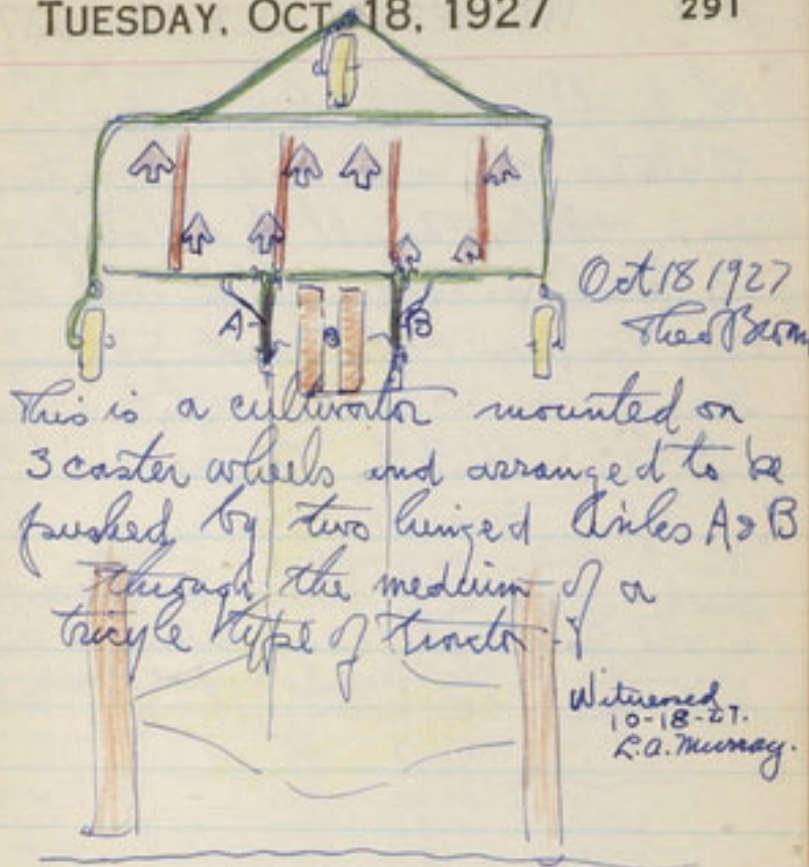 TUESDAY, OCT. 18, 1927
291
A
B
Oct 18 1927
Theo Brown
This is a cultivator mounted on
3 caster wheels and arranged to be
pushed by two hinged links A & B
through the medium of a
tricycle type of tractor -
Witnessed
10-18-27.
L.A. Murray.